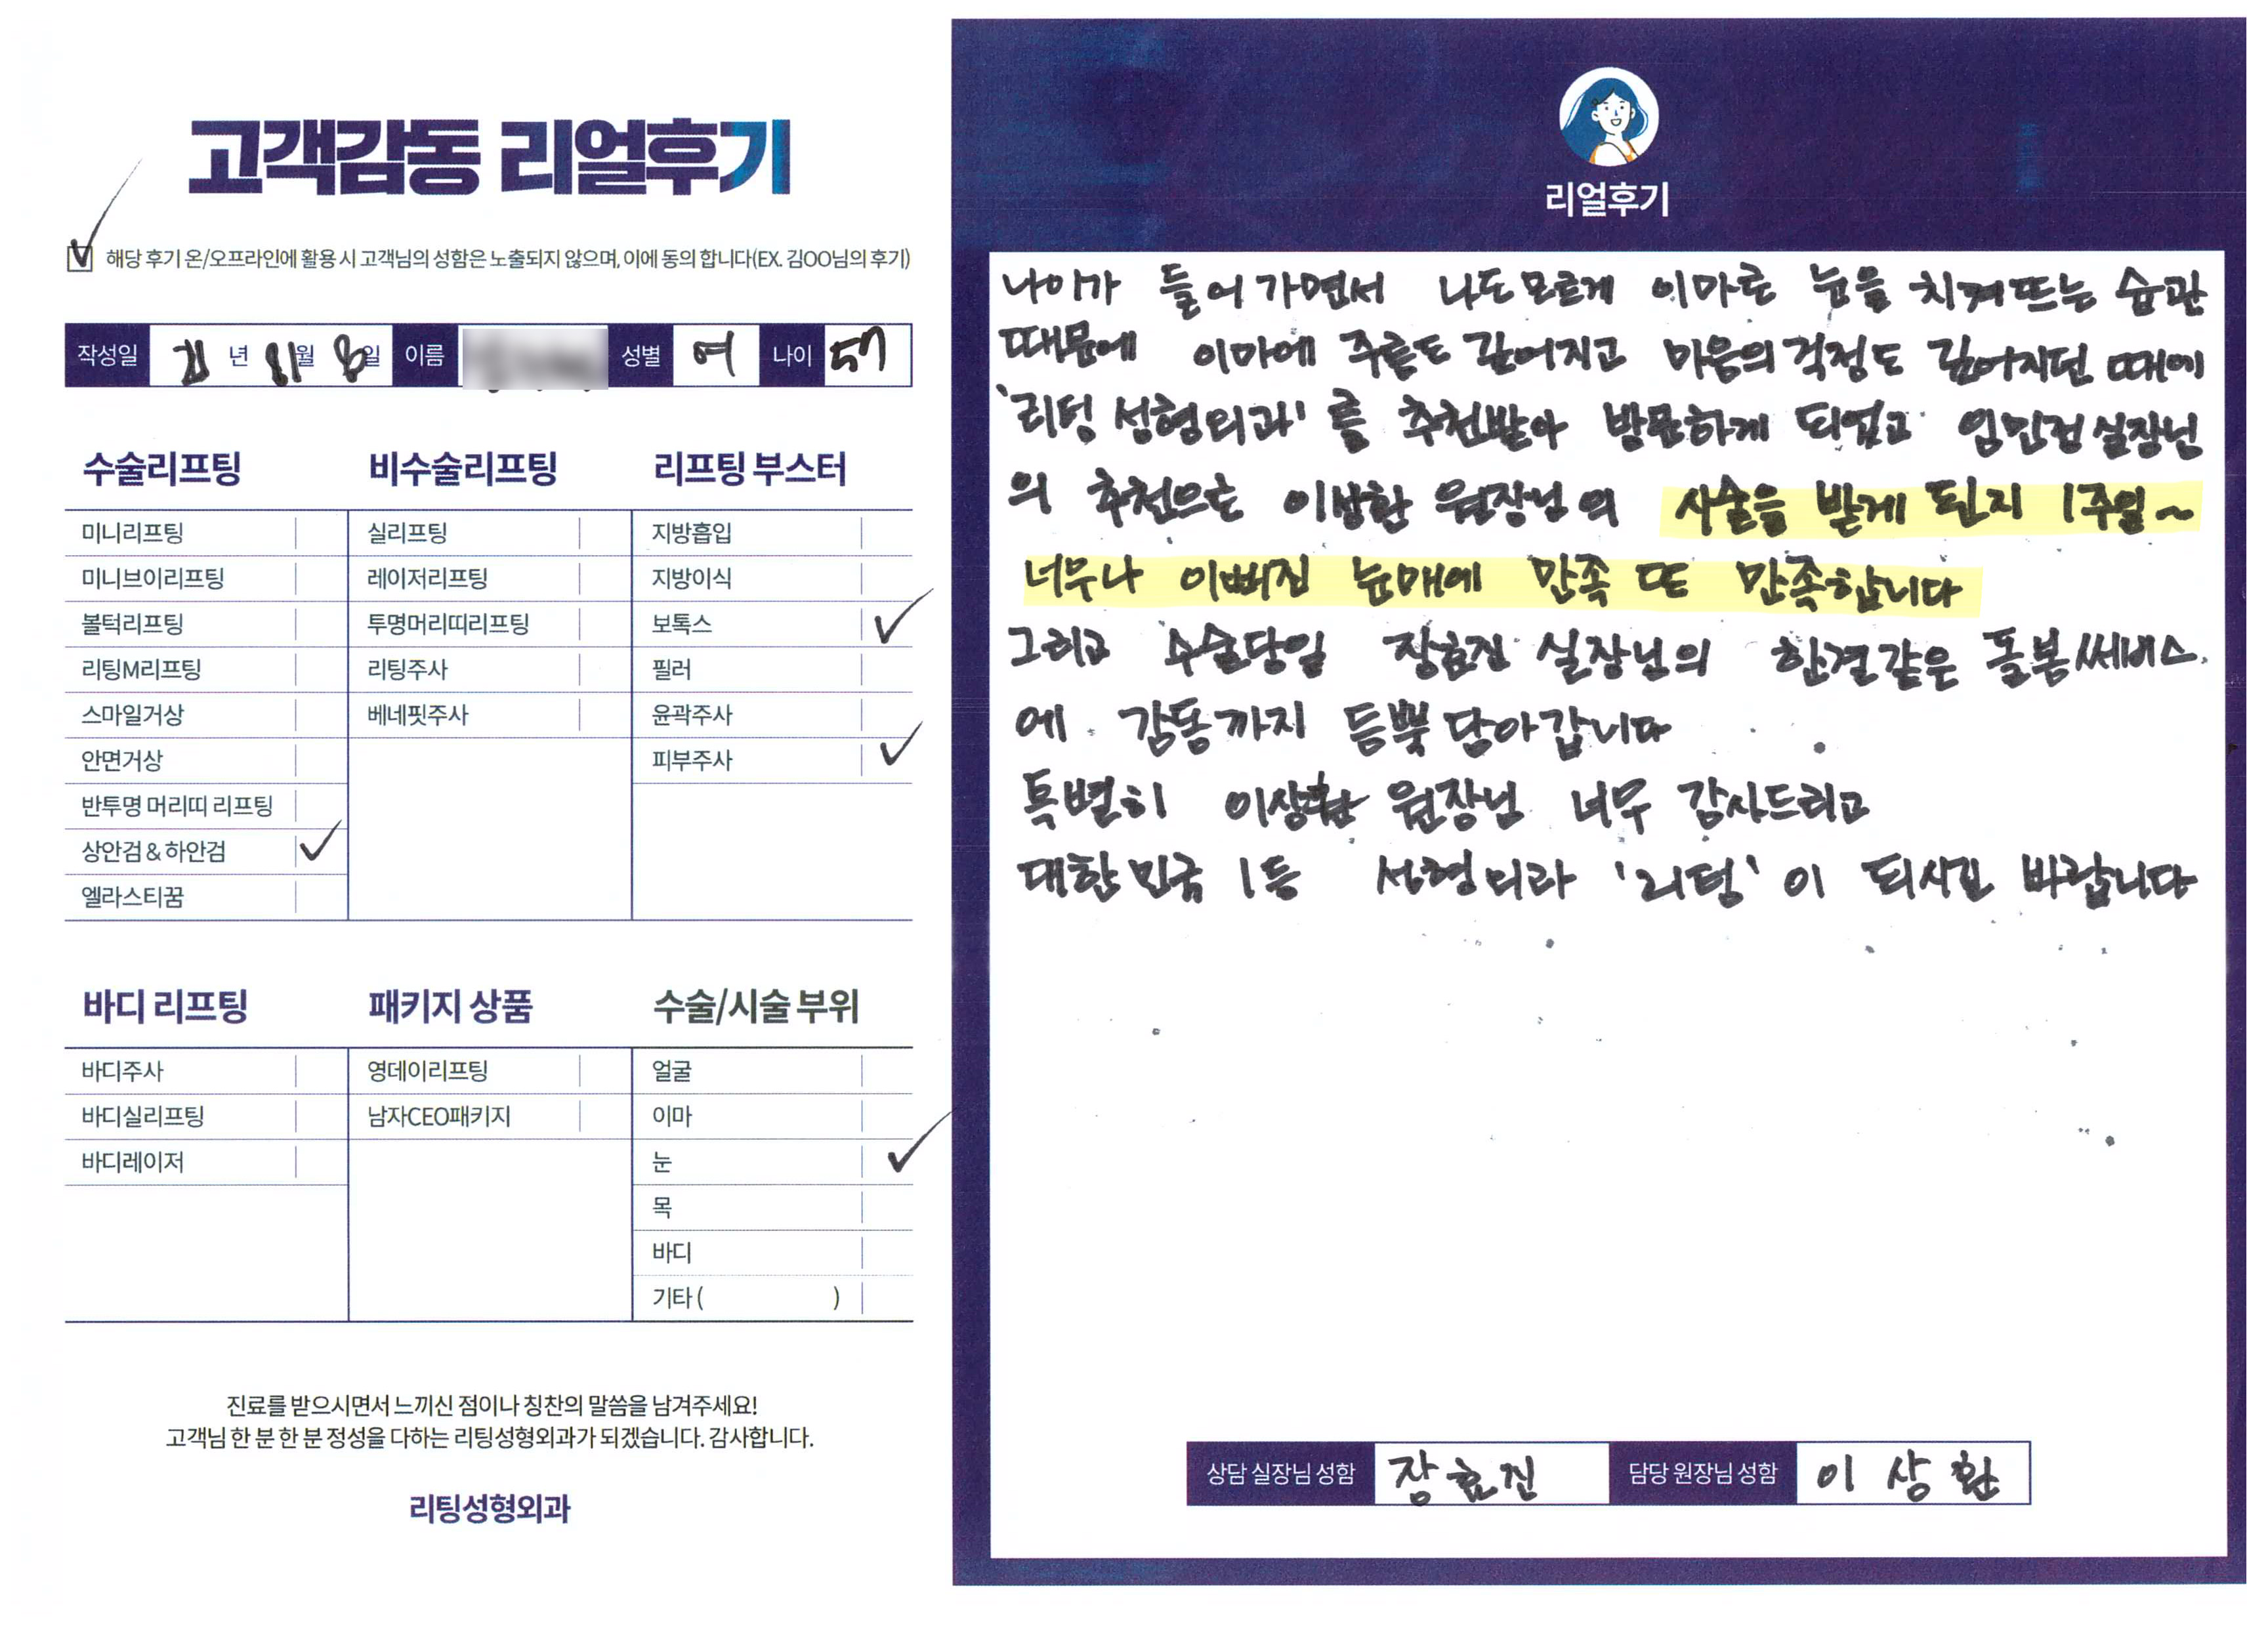 고객감동 리얼후기
해당 후기 온/오프라인에 활용 시 고객님의 성함은 노출되지 않으며, 이에 동의 합니다(EX. 김OO님의 후기)
작성일 21 년 월 8일 이름 성별 여 나이 57
수술리프팅
미니리프팅
미니브이리프팅
볼턱리프팅
리팅M리프팅
스마일거상
안면거상
반투명 머리띠 리프팅
상안검 & 하안검
엘라스티꿈
비수술리프팅
실리프팅
레이저리프팅
투명머리띠리프팅
리팅주사
베네핏주사
리프팅 부스터
지방흡입
지방이식
보톡스
필러
윤곽주사
피부주사
바디 리프팅
바디주사
바디실리프팅
바디레이저
패키지 상품
영데이리프팅
남자CEO패키지
수술/시술 부위
얼굴
이마
눈
목
바디
기타 ( )
진료를 받으시면서 느끼신 점이나 칭찬의 말씀을 남겨주세요!
고객님 한 분 한 분 정성을 다하는 리팅성형외과가 되겠습니다. 감사합니다.
리팅성형외과
리얼후기
나이가 들어가면서 나도모르게 이마로 눈을 치켜뜨는 습관
때문에 이마에 주름도 깊어지고 마음의 걱정도 깊어지던 때에
'리팅 성형외과' 를 추천받아 방문하게 되었고 실장님
의 추천으로 이상환 원장님의 시술을 받게 된지 1주일~
너무나 이뻐진 눈매에 만족 또 만족합니다
그리고 수술당일 장효진 실장님의 한결같은 돌봄 써비스
에 감동까지 듬뿍 담아갑니다
특별히 이상환 원장님 너무 감사드리고
대한민국 1등 성형외과 '리팅' 이 되시고 바랍니다
상담 실장님 성함 장효진 담당 원장님 성함 이상환